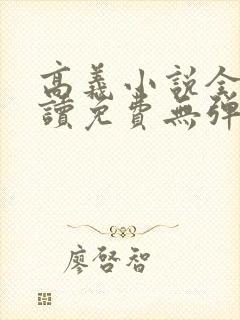 高義小說全
讀免費無彈
廖啓智